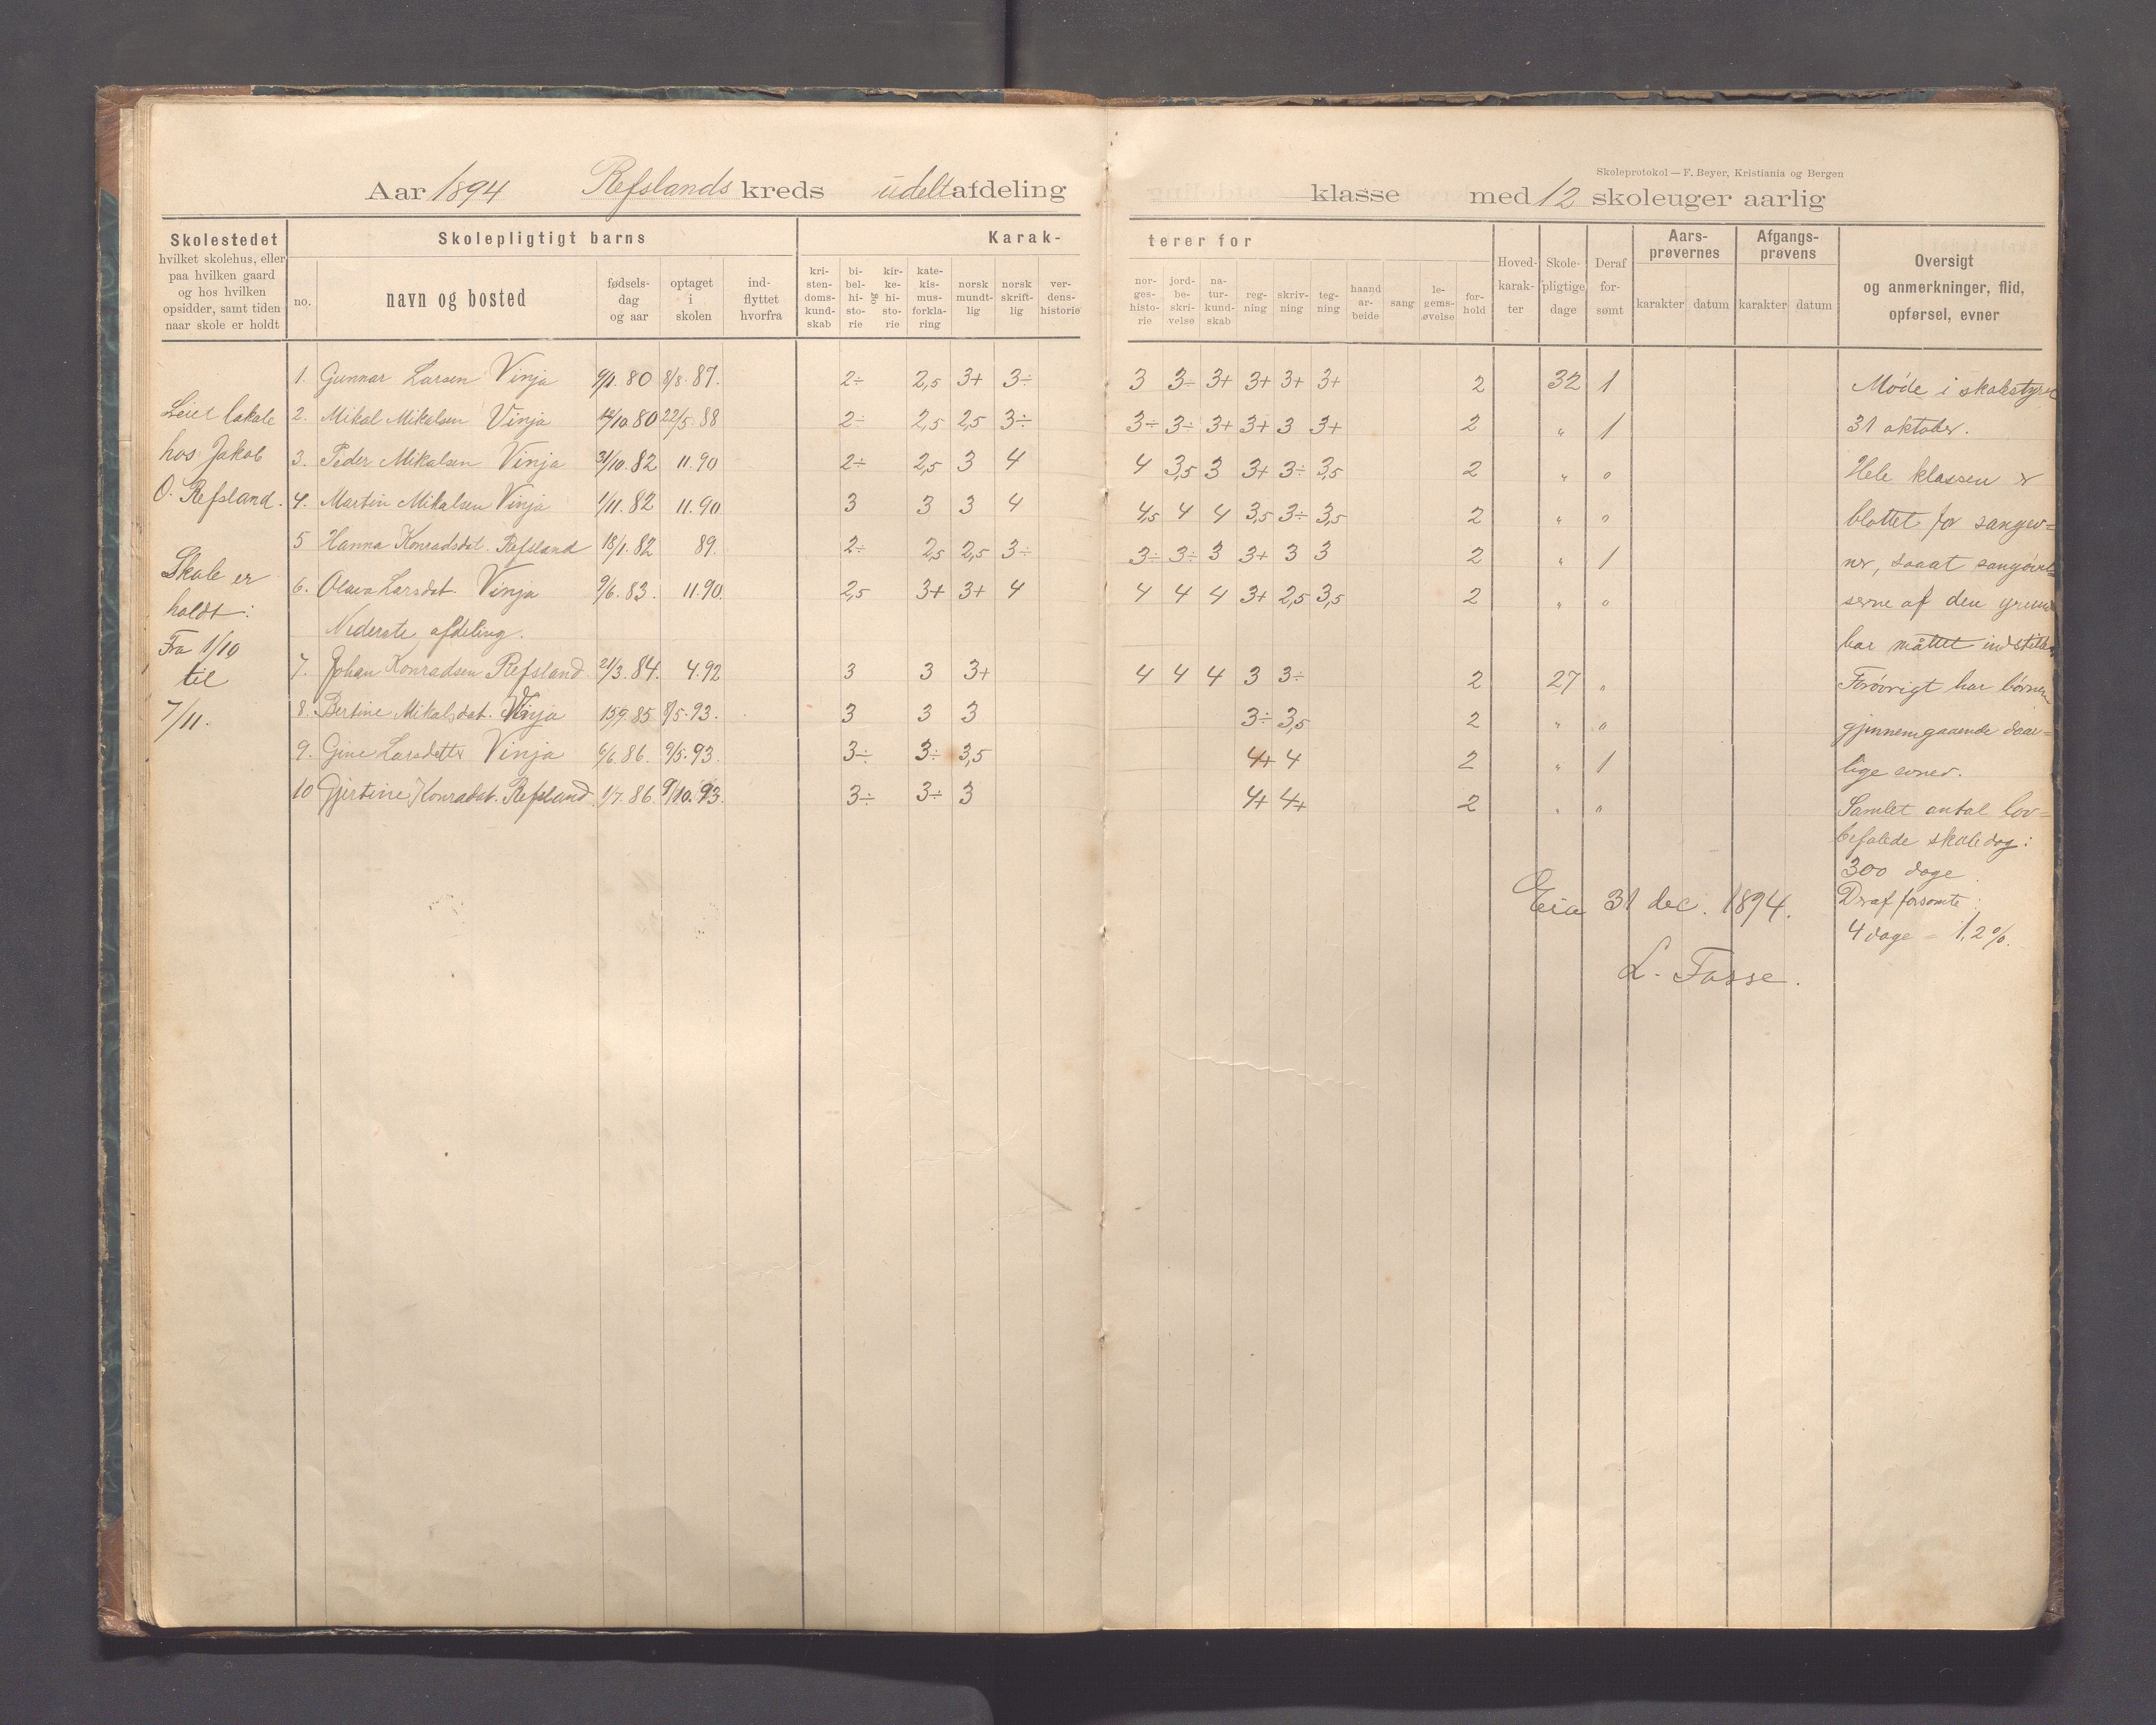 Skoleprotokol — F. Beyer, Kristiania og Bergen
Aar 1894 Refslands kreds udelt afdeling klasse med 12 skoleuger aarlig
Skolestedet
hvilket skolehus, eller
paa hvilken gaard
og hos hvilken
opsidder, samt tiden
naar skole er holdt
Skolepligtigt barns
no. navn og bosted fødsels-dag og aar optaget i skolen ind-flyttet hvorfra
Karak-terer for
kri-sten-doms-kund-skab bi-bel-hi-sto-rie og kir-ke-hi-sto-rie kate-kis-mus-forkla-ring norsk mundt-lig norsk skrift-lig ver-dens-historie
nor-ges-histo-rie jord-be-skri-velse na-tur-kund-skab reg-ning skriv-ning teg-ning haand ar-beide sang le-gems-øvelse for-hold
Hoved-karak-ter Skole-pligtige dage Deraf for-sømt
Aars-prøvernes karakter datum
Afgangs-prøvens karakter datum
Oversigt
og anmerkninger, flid,
opførsel, evner
Leiet lokale
hos Jakob
O. Refsland.
Skole er
holdt:
Fra 1/10
til
7/11.
1. Gunnar Larsen Vinja 9/1. 80 8/8. 87. 2÷ 2,5 3+ 3÷ 3 3÷ 3+ 3+ 3+ 3+ 2 32 1
2. Mikal Mikalsen Vinja /10 80 22/5 88 2÷ 2,5 2,5 3÷ 3÷ 3÷ 3+ 3+ 3 3+ 2 " 1
3. Peder Mikalsen Vinja 31/10. 82 11.90 2÷ 2,5 3 4 4 3,5 3 3+ 3÷ 3,5 2 " 0
4. Martin Mikalsen Vinja 1/11. 82 11.90 3 3 3 4 4,5 4 4 3,5 3÷ 3,5 2 " 0
5 Hanna Konradsdat. Refsland 18/1. 82 89. 2÷ 2,5 2,5 3÷ 3÷ 3÷ 3 3+ 3 3 2 " 1
6. Olava Larsdat. Vinja 9/6. 83. 11.90. 2,5 3+ 3+ 4 4 4 4 3+ 2,5 3,5 2 " 0
Nederste afdeling.
7. Johan Konradsen Refsland 21/3. 84. 4.92 3 3 3+ 4 4 4 3 3÷ 2 27 "
8. Bertine Mikalsdat. Vinja 15/9. 85 8/5. 93. 3 3 3 3÷ 3,5 2 " 0
9. Gine Larsdatter Vinja 6/6. 86. 9/5. 93. 3÷ 3÷ 3,5 4+ 4 2 " 1
10 Gjertine Konradst. Refsland 1/7. 86. 9/10. 93. 3÷ 3÷ 3 4+ 4+ 2 " 0
Møde i skolestyret
31 oktober.
Hele klassen er
blottet for sangev=
ner, saaat sangøvel=
serne af den grund
har måttet indstilles
Forøvrigt har børnene
gjennemgaaende daar=
lige evner.
Samlet antal lov=
befalede skoledag:
300 dage.
Deraf forsømte:
4 dage = 1,2%.
Eia 31 dec. 1894.
L. Fosse.